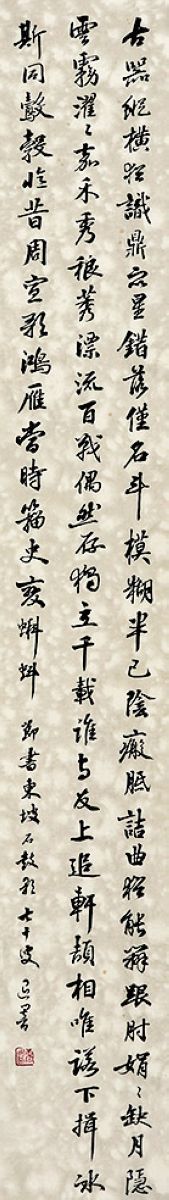 古器縱橫猶識鼎众星錯落僅名斗模糊半已陰瘢胝詰曲猶能辨跟肘娟〻缺月隱
雲霧濯〻嘉禾秀稂莠漂流百戰偶然存獨立千載誰与友上追軒頡相唯諾下揖冰
斯同鷇憶昔周宣歌鴻雁當時籀史變蝌蚪 節書東坡石鼓歌 七十叟